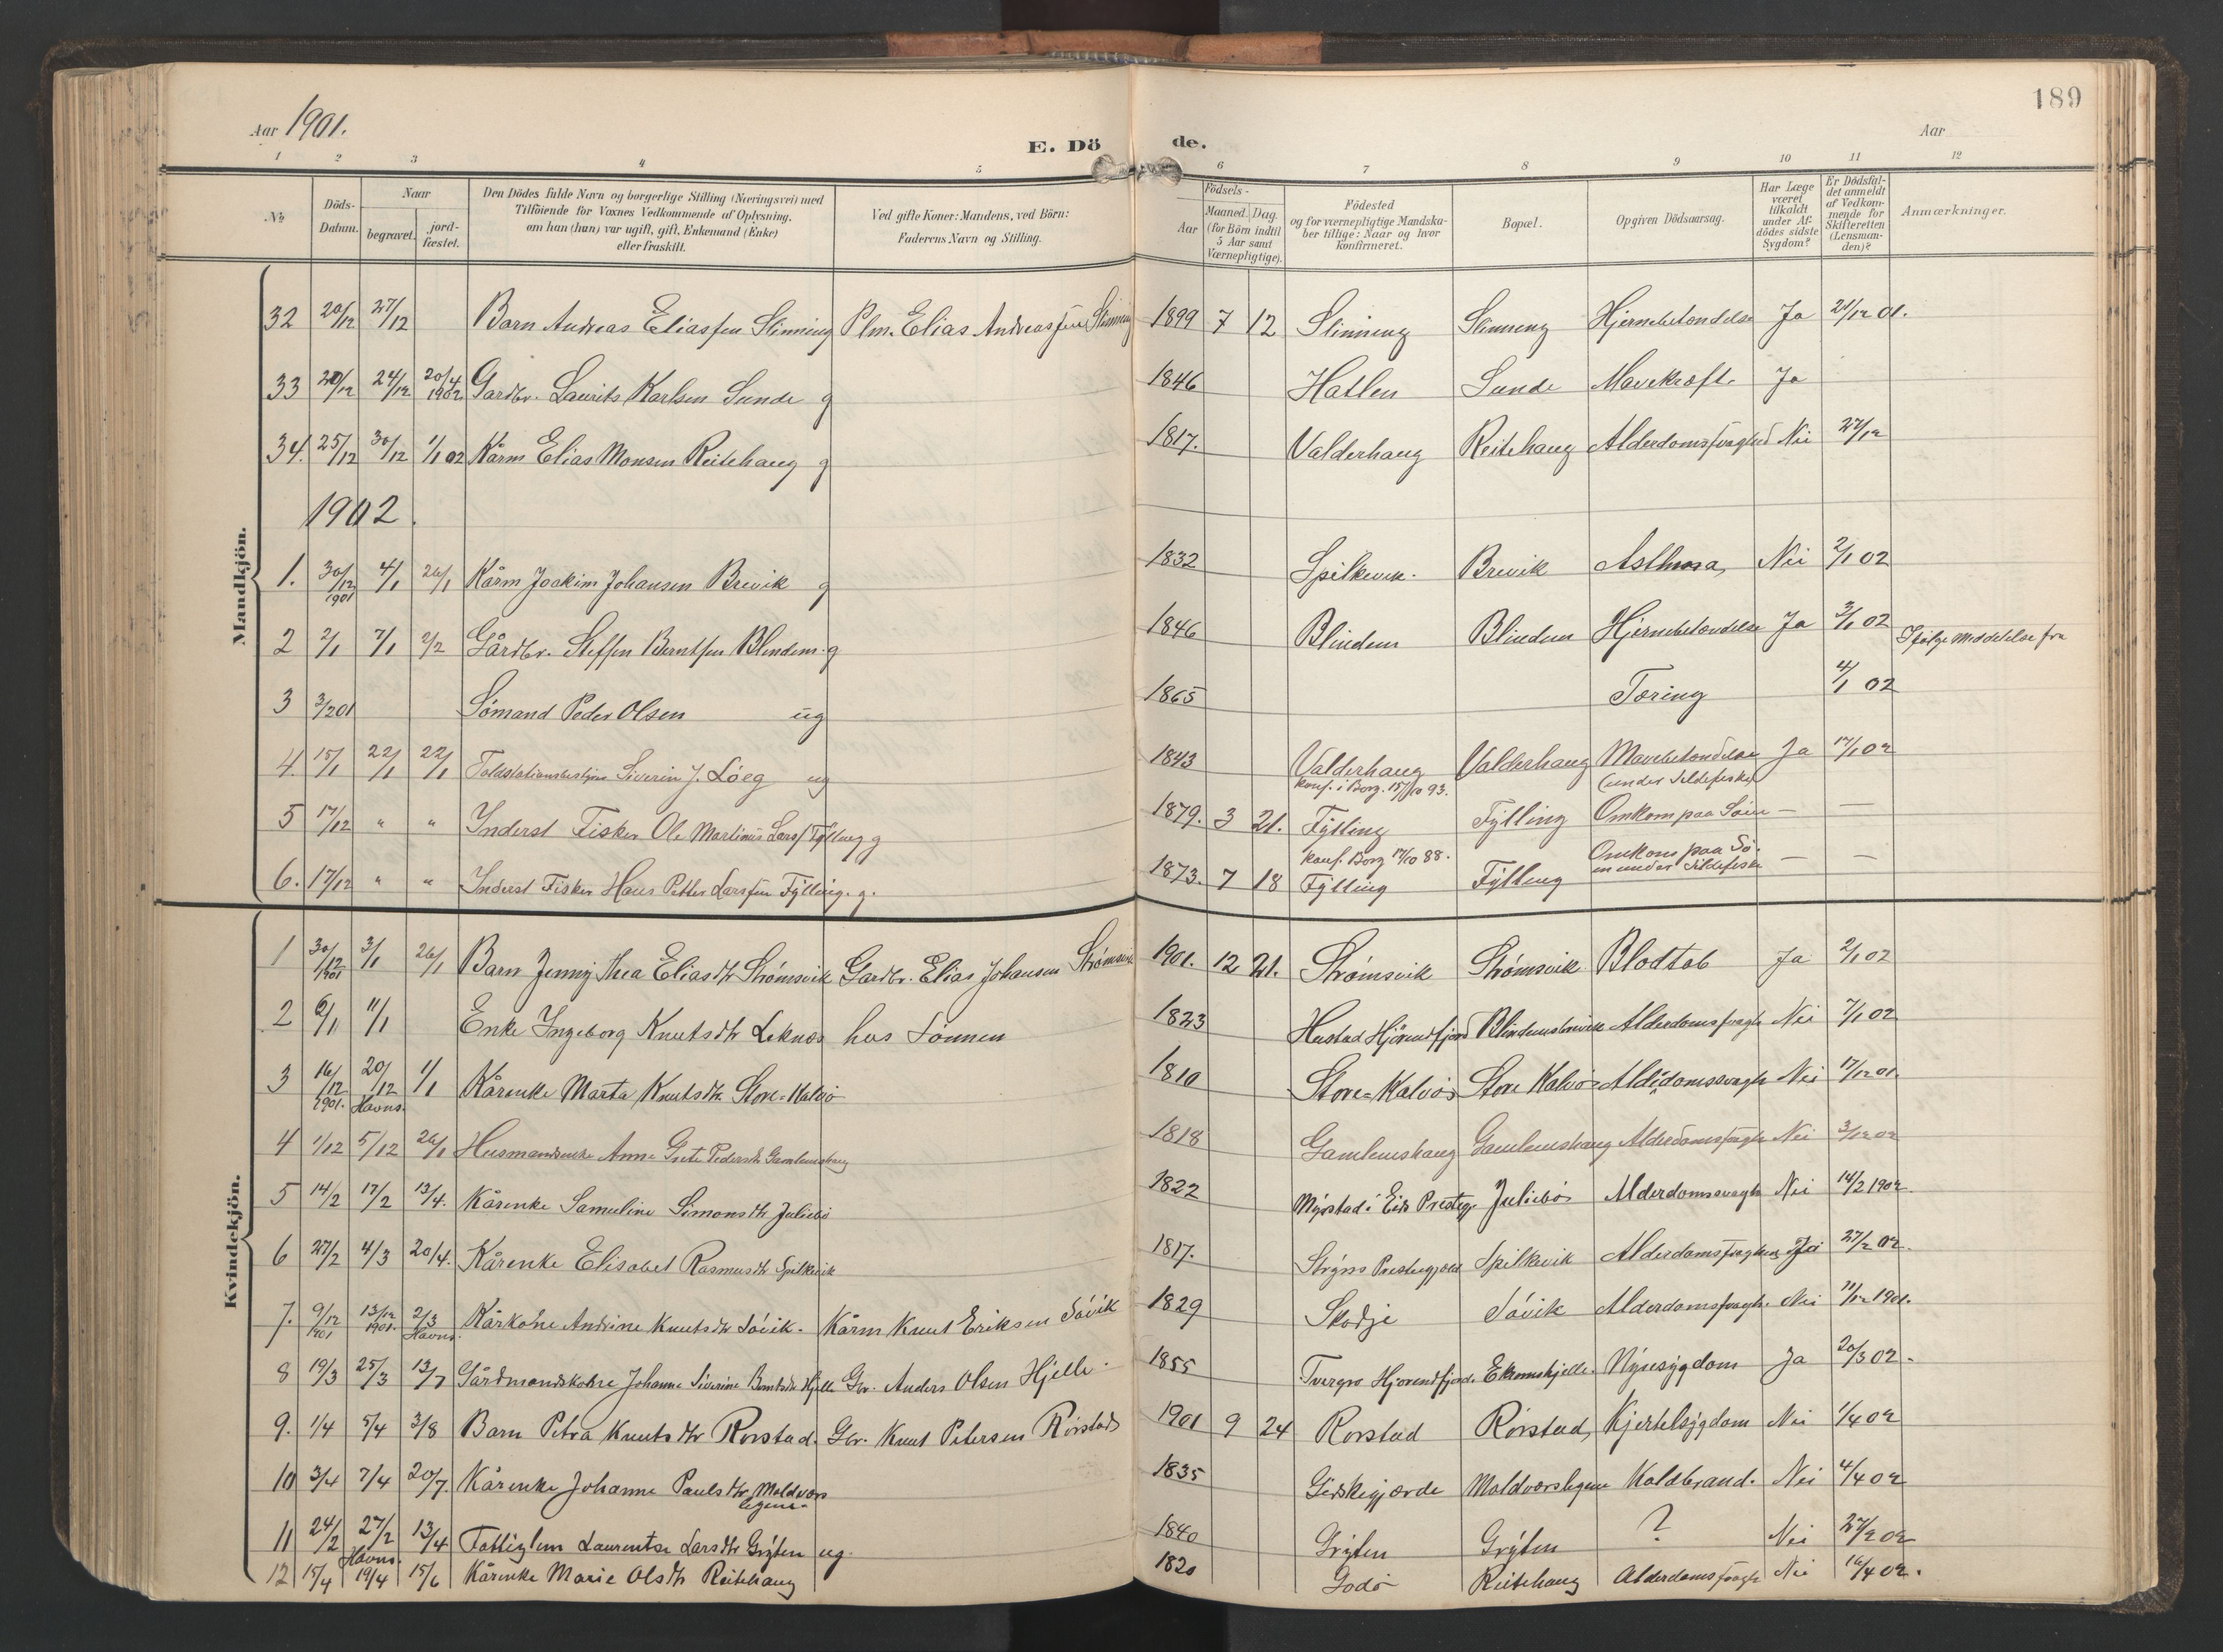 189
Aar 1901.
E. Döde.
Aar
1 2 3 4 5 6 7 8 9 10 11 12
No
Döds-Datum.
Naar
begravet.
jord-fæstet.
Den Dödes fulde Navn og borgerlige Stilling (Næringsvei) med
Tilföiende for Voxnes Vedkommende af Oplysning,
om han (hun) var ugift, gift, Enkemand (Enke)
eller fraskilt.
Ved gifte Koner: Mandens, ved Börn:
Faderens Navn og Stilling.
Födsels-
Aar
Maaned. Dag.
(for Börn indtil
5 Aar samt
Værnepligtige).
Födested
og for værnepligtige Mandska-
ber tillige: Naar og hvor
konfirmeret.
Bopæl.
Opgiven Dödsaarsag.
Har Læge
været
tilkaldt
under Af-
dödes sidste
Sygdom?
Er Dödsfal-
det anmeldt
af Vedkom-
mende for
Skifteretten
(Lensman-
den)?
Anmærkninger.
Mandkjön.
32 20/12 27/12 Barn Andreas Eliassen Slinning Plm. Elias Andreassen Slinning 1899 7 12 Slinning Slinning Hjernebetændelse Ja 21/12 01.
33 20/12 24/12 20/4 1902 Gardbr. Laurits Karlsen Sunde g 1846 Hatlen Sunde Mavekræft. Ja
34. 25/12 30/12 1/1 02 Kårm Elias Monsen Reitehaug g 1817. Valderhaug Reitehaug Alderdomssvaghed Nei 27/12
1902.
1. 30/12 1901 4/1 26/1 Kårm Joakim Johansen Brevik g 1832 Spilkevik. Brevik Asthma, Nei 2/1 02
2 2/1 7/1 2/2 Gårdbr. Steffen Berntsen Blindem. g 1846 Blindem Blindem Hjernebetændelse Ja 3/1 02
3 3/2 01 Sømand Peder Olsen ug 1865 Tæring 4/1 02 Ifølge Meddelelse fra
4. 15/1 22/1 22/1 Toldstationsbestyrer Siverin J. Löeg ug 1843 Valderhaug Valderhaug Mavebetændelse Ja 17/1 02
5 17/12 " " Inderst Fisker Ole Martinus Larss Fylling g 1879. 3 21. konf. i Borg. 15/10 93. Fylling Fylling (under Sildefiske) Omkom paa Söen — —
6. 17/12 " " Inderst Fisker Hans Petter Larssen Fylling. g. 1873. 7 18 konf. Borg 17/10 88. Fylling Fylling Omkom paa Sö-
en under Sildefiske — —
Kvindekjön.
1 30/12 1901 3/1 26/1 Barn Jenny Thea Eliasdtr Strömsvik Gardbr. Elias Johansen Strömsvik 1901. 12 21. Strömsvik Strömsvik Blodtab Ja 2/1 02
2 6/1 11/1 Enke Ingeborg Knutsdtr Leknæs hos Sönnen 1823 Hustad Hjörundfjord Alderdomssvagh Nei 7/1 02
3 16/12 1901. 20/12 Havns. 1/1 Kårenke Marta Knutsdtr. Store-Kalvö 1810 Store-Kalvö Store Kalvö Alderdomssvagh Nei 17/12 01.
4 1/12 5/12 26/1 Husmandsenke Anne Grete Pedersdtr Gamlemshaug 1818 Gamlemshaug Gamlemshaug Alderdomssvagh Nei 3/12 02
5 14/2 17/2 13/4. Kårenke Samuline Simonsdtr Juliebö 1822 Myrstad i Eids Prestegj. Juliebö Alderdomssvagh Nei 14/2 1902.
6 27/2 4/3 20/4. Kårenke Elisabet Rasmusdtr Spilkevik 1817. Stryns Prestegjeld Spilkevik Alderdomssvaghed Nei 27/2 02.
7. 9/12 1901 13/12 1901. 2/3 Havns. Kårkone Andrine Knutsdtr Sövik. Kårm Knut Eriksen Sövik 1829 Skodje Sövik Alderdomssvagh. Nei 11/12 1901.
8 19/3 25/3 13/7 Gårdmandskone Johanne Siverine Berntsdtr Hjelle Gbr. Anders Olsen Hjelle. 1855 Tvergro Hjörundfjord. Ekremshjelle. Nyresygdom Ja 20/3 02.
9. 1/4 5/4 3/8 Barn Petra Knutsdtr Rörstad. Gbr. Knut Petersen Rörstad 1901 9 24 Rörstad Rörstad, Kjertelsygdom Nei 1/4 02
10 3/4 7/4 20/7 Kårenke Johanne Paulsdtr, Moldværs
legene. 1835 Giskegjærde Moldværslegene Koldbrand. Nei 4/4 02
11 24/2 27/2 Havns. 13/4 Fattiglem Laurentse Larsdtr Gryten ug. 1840 Gryten Gryten ? Nei 27/2 02
12 15/4 19/4 15/6 Kårenke Marie Olsdtr Reitehaug 1820 Godö Reitehaug Alderdomssvagh Nei 16/4 02.